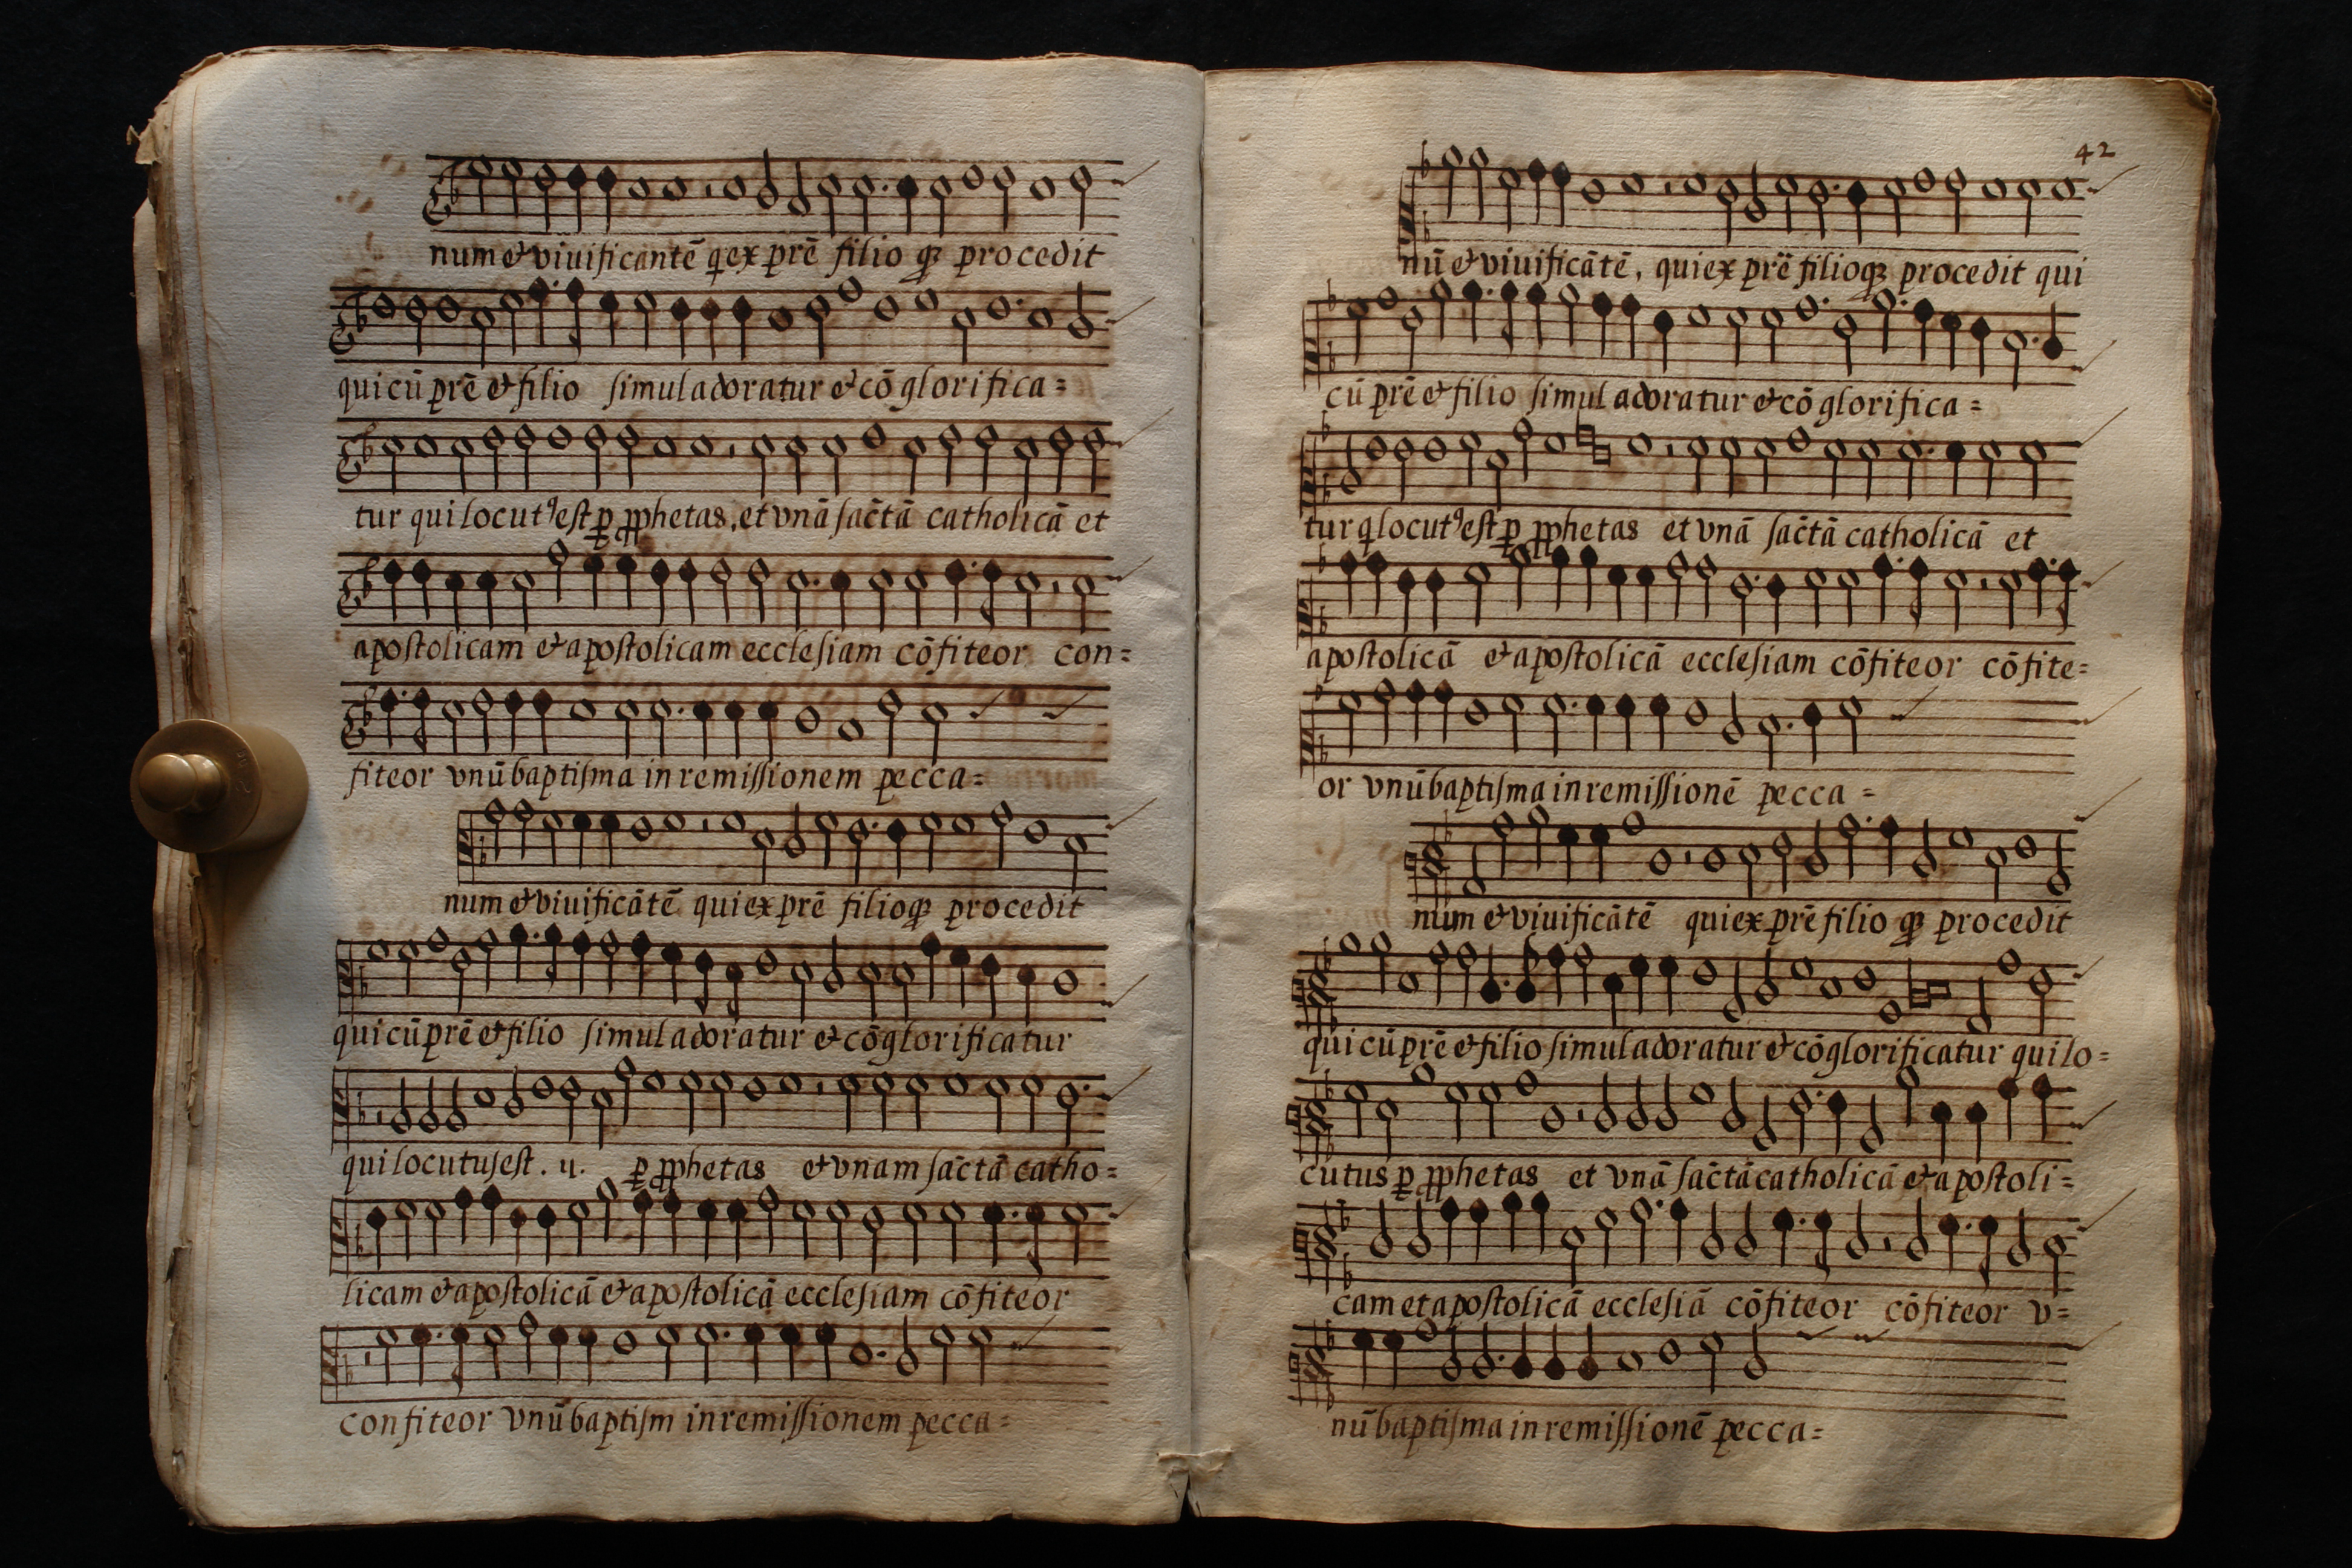 num & viuificantē q̄ ex prē filioqꝫ procedit
qui cū prē & filio simul adoratur & cō glorifica=
tur qui locutꝰ est ꝑ ꝓphetas, et vnā sāctā catholicā et
apostolicam & apostolicam ecclesiam cōfiteor con=
fiteor vnū baptisma in remissionem pecca=
num & viuificātē qui ex prē filioqꝫ procedit
qui cū prē & filio simul adoratur & cō glorificatur
qui locutus est . ij. ꝑ ꝓphetas & vnam sāctā catho=
licam & apostolicā & apostolicā ecclesiam cōfiteor
confiteor vnū baptism in remissionem pecca=
42
nū & viuificātē, qui ex prē filioqꝫ procedit qui
cū prē & filio simul adoratur & cō glorifica=
tur q̄ locutꝰ est ꝑ ꝓphetas et vnā sāctā catholicā et
apostolicā & apostolicā ecclesiam cōfiteor cōfite=
or vnū baptisma in remissionē pecca=
num & viuificātē qui ex prē filioqꝫ procedit
qui cū prē & filio simul adoratur & cōglorificatur qui lo=
cutus ꝑ ꝓphetas et vnā sāctā catholicā & apostoli=
cam et apostolicā ecclesiā cōfiteor cōfiteor v=
nū baptisma in remissionē pecca=